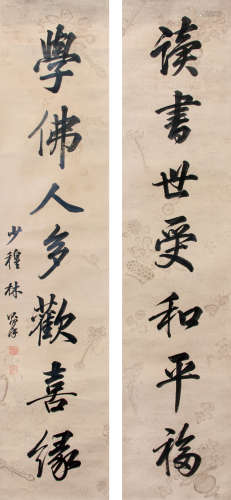 读書世受和平福
學佛人多歡喜缘
少穆林則徐